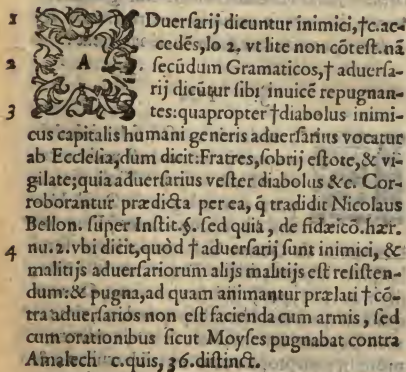 1 ADuersarij dicuntur inimici,†c.ac-
cedẽs,lo 2, vt lite non cõtest.nã
2 secũdum Gramaticos,† aduersa-
rij dicũtur sibi inuicẽ repugnan-
3 tes:quapropter †diabolus inimi-
cus capitalis humani generis aduersarius vocatur
ab Ecclesia,dum dicit:Fratres,sobrij estote,& vi-
gilate;quia aduersarius vester diabolus &c. Cor-
roborantur prædicta per ea, q̃ tradidit Nicolaus
Bellon. super Instit.§. sed quia, de fidæicõ.hær.
4 nu.2.vbi dicit,quòd † aduersarij sunt inimici, &
malitijs aduersariorum alijs malitijs est resisten-
dum:& pugna,ad quam animantur prælati † cõ-
tra aduersarios non est facienda cum armis, sed
cum orationibus sicut Moyses pugnabat contra
Amalech c.quis, 36.distinct.